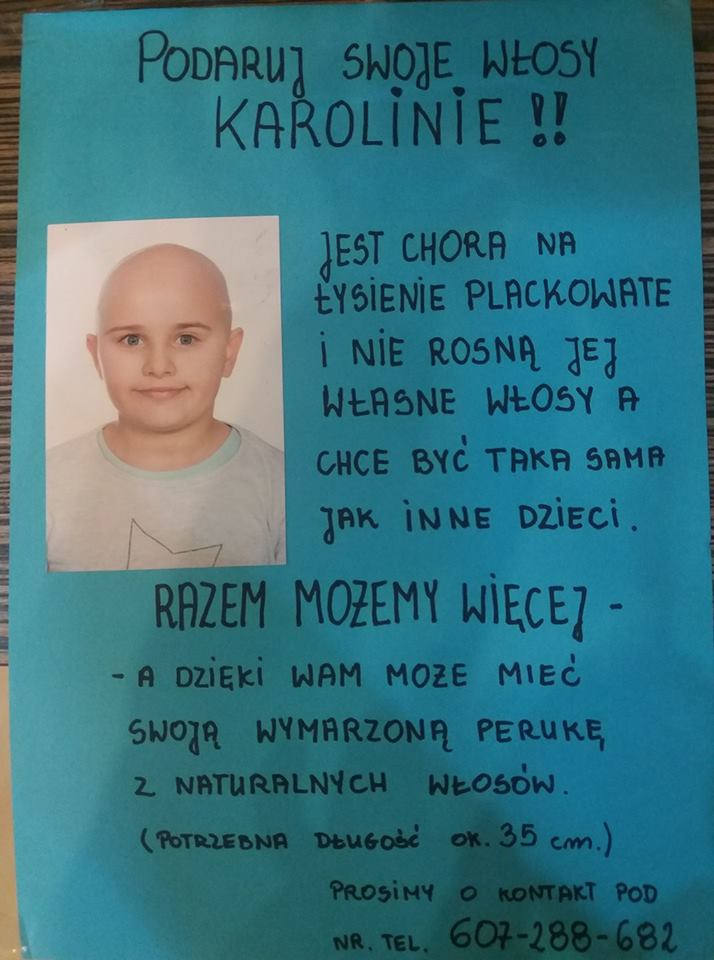 PODARUJ SWOJE WŁOSY
KAROLINIE !!
JEST CHORA NA
ŁYSIENIE PLACKOWATE
I NIE ROSNĄ JEJ
WŁASNE WŁOSY A
CHCE BYĆ TAKA SAMA
JAK INNE DZIECI.
RAZEM MOŻEMY WIĘCEJ -
- A DZIĘKI WAM MOŻE MIEĆ
SWOJĄ WYMARZONĄ PERUKĘ
Z NATURALNYCH WŁOSÓW.
(POTRZEBNA DŁUGOŚĆ OK. 35 cm.)
PROSIMY O KONTAKT POD
NR. TEL. 607-288-682